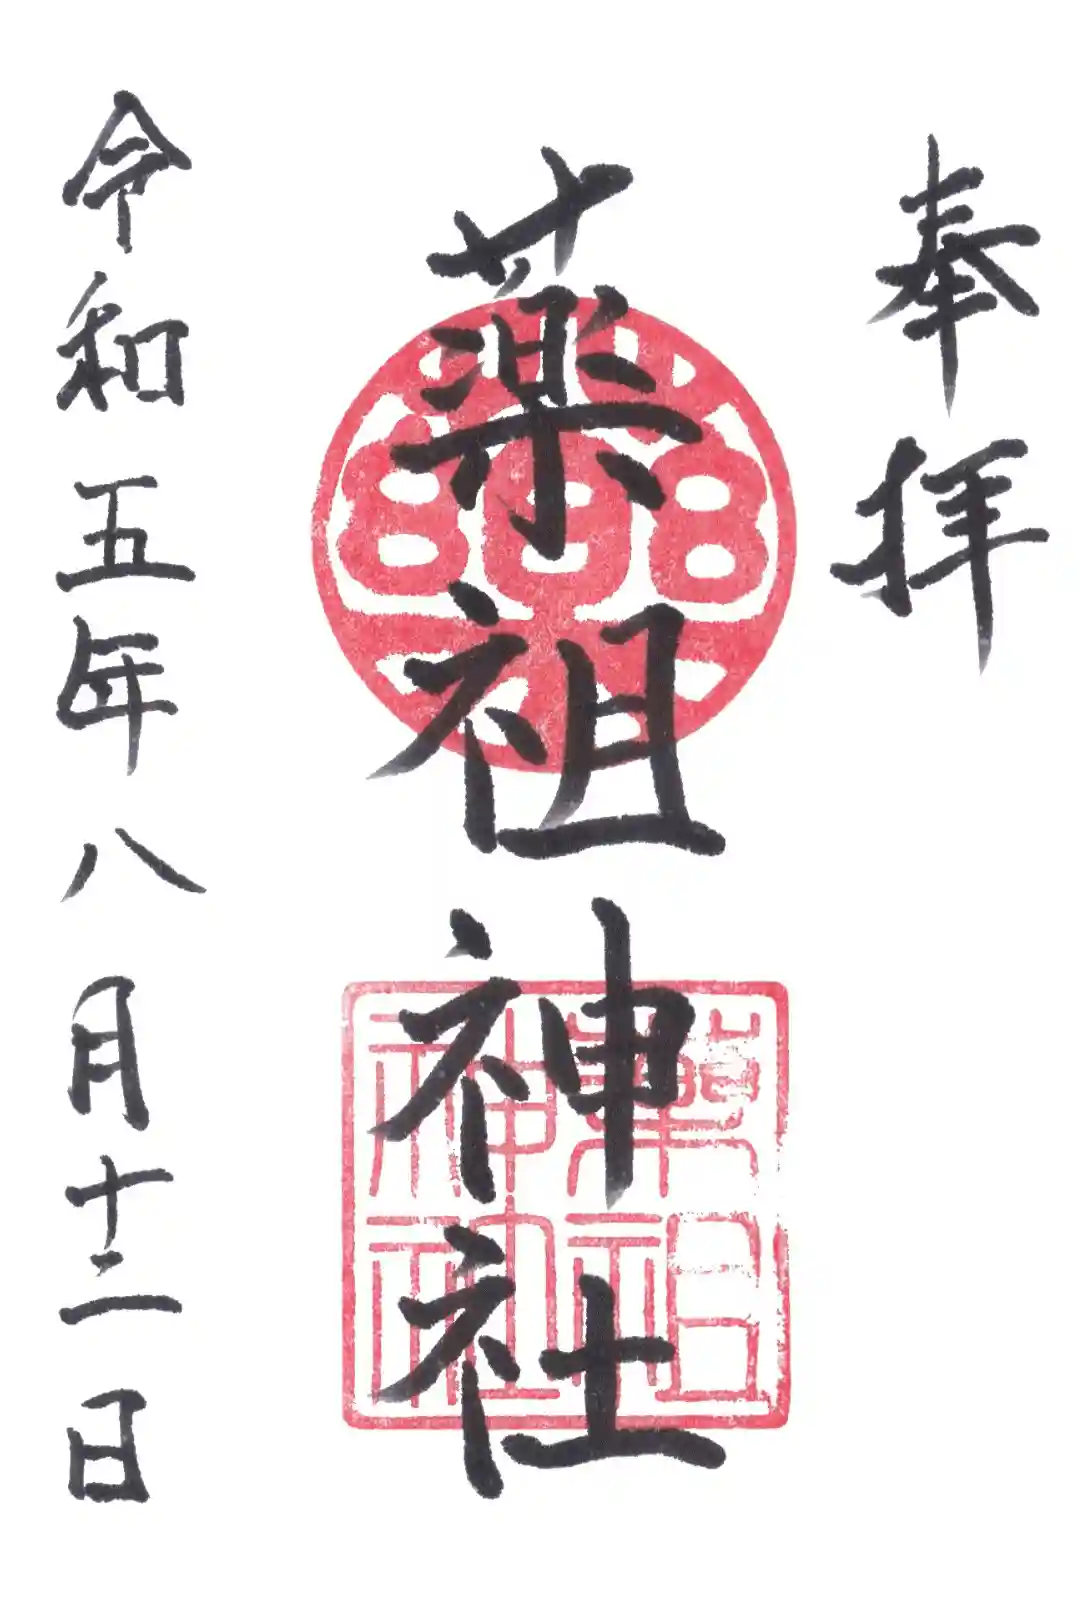 奉拝
薬祖神社
薬祖
神社
令和五年八月十二日